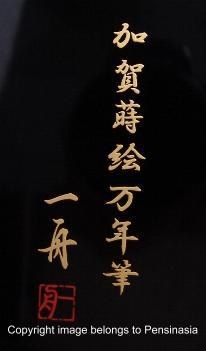 加賀蒔絵万年筆
一舟
Copyright image belongs to Pensinasia